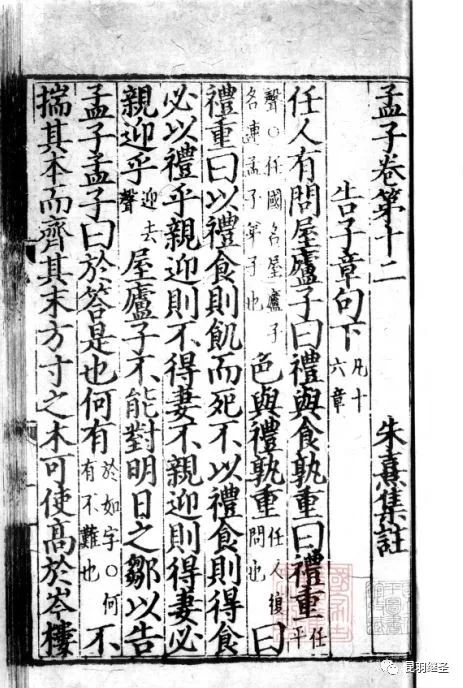 孟子卷第十二 朱熹集註
告子章句下 凡十六章
任人有問屋廬子曰禮與食孰重曰禮重 任平
聲○任國名屋廬子名連孟子弟子也 色與禮孰重 任人復問也 曰
禮重曰以禮食則飢而死不以禮食則得食
必以禮乎親迎則不得妻不親迎則得妻必
親迎乎 迎去聲 屋廬子不能對明日之鄒以告
孟子孟子曰於答是也何有 於如字○何有不難也 不
揣其本而齊其末方寸之木可使高於岑樓
昆羽继圣